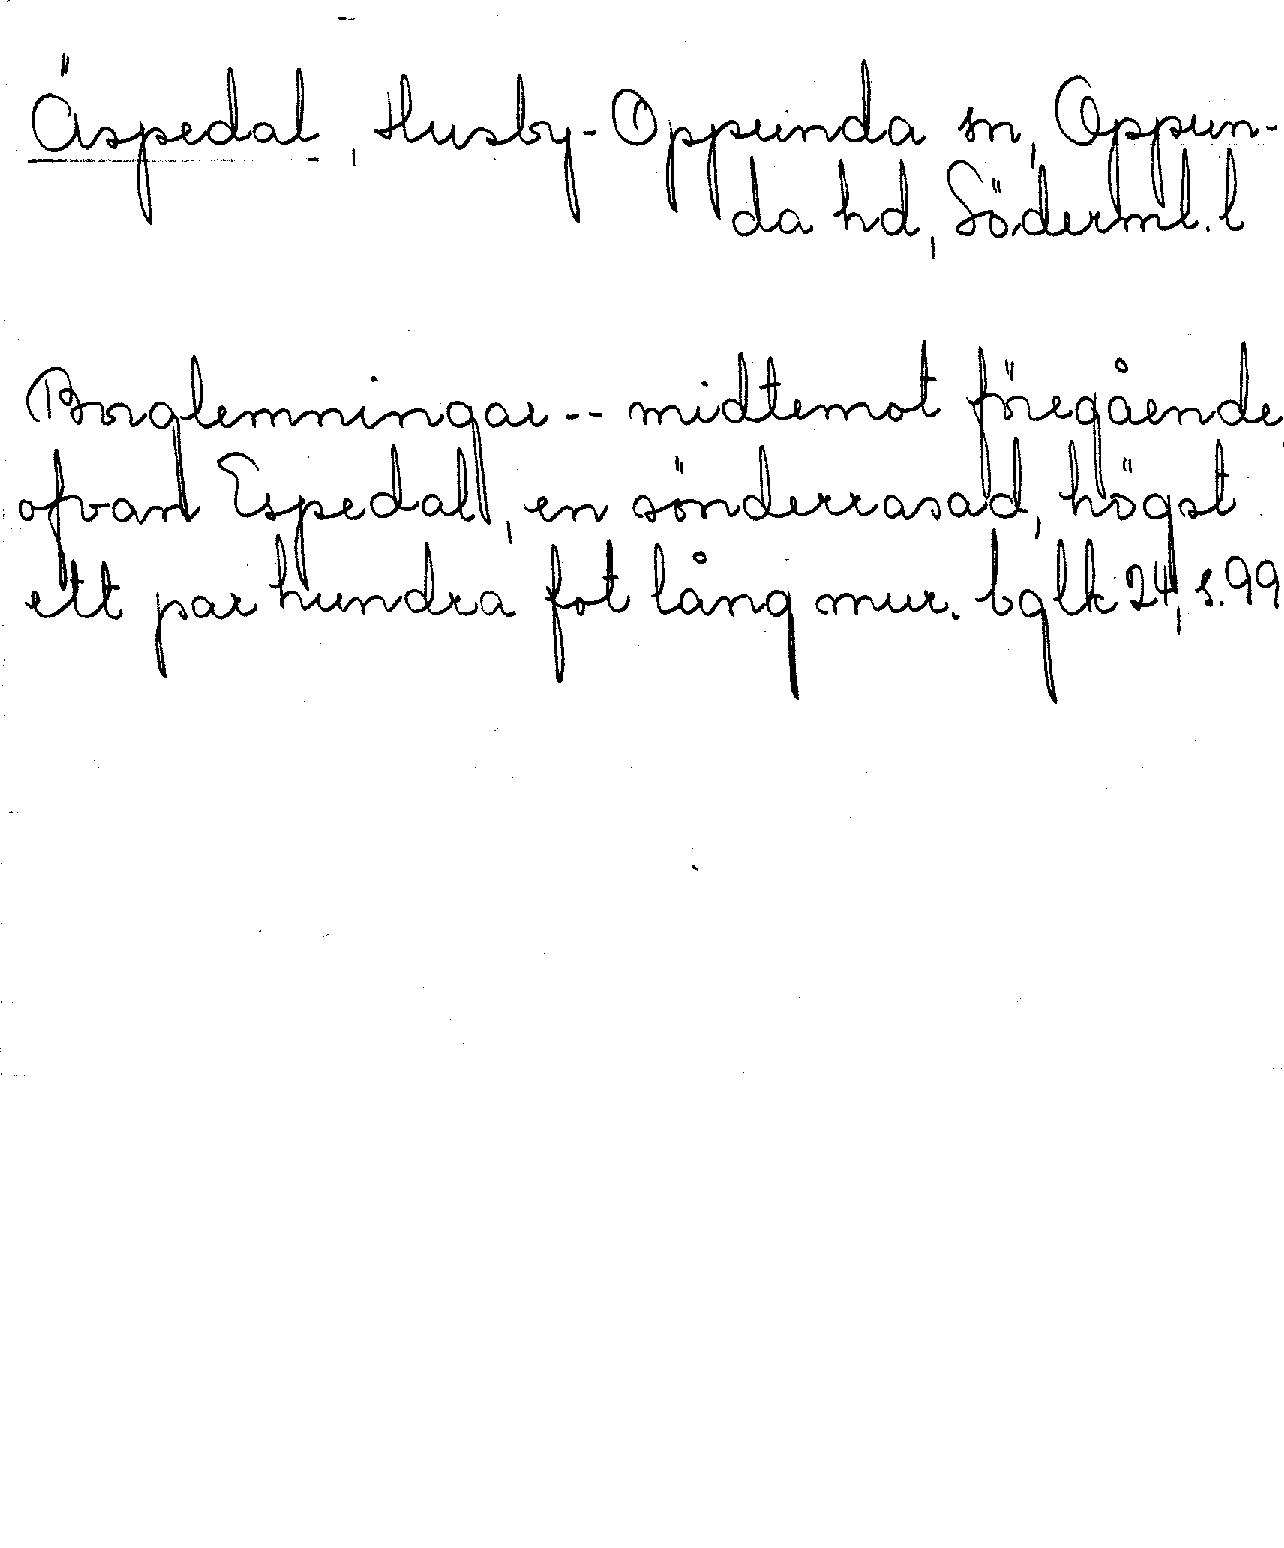 Äspedal, Husby-Oppunda sn, Oppun-
da hd, Söderml. l
Borglemningar -- midtemot föregående
ofvan Espedal, en sönderrasad, högst
ett par hundra fot lång mur. bglk 24, s. 99